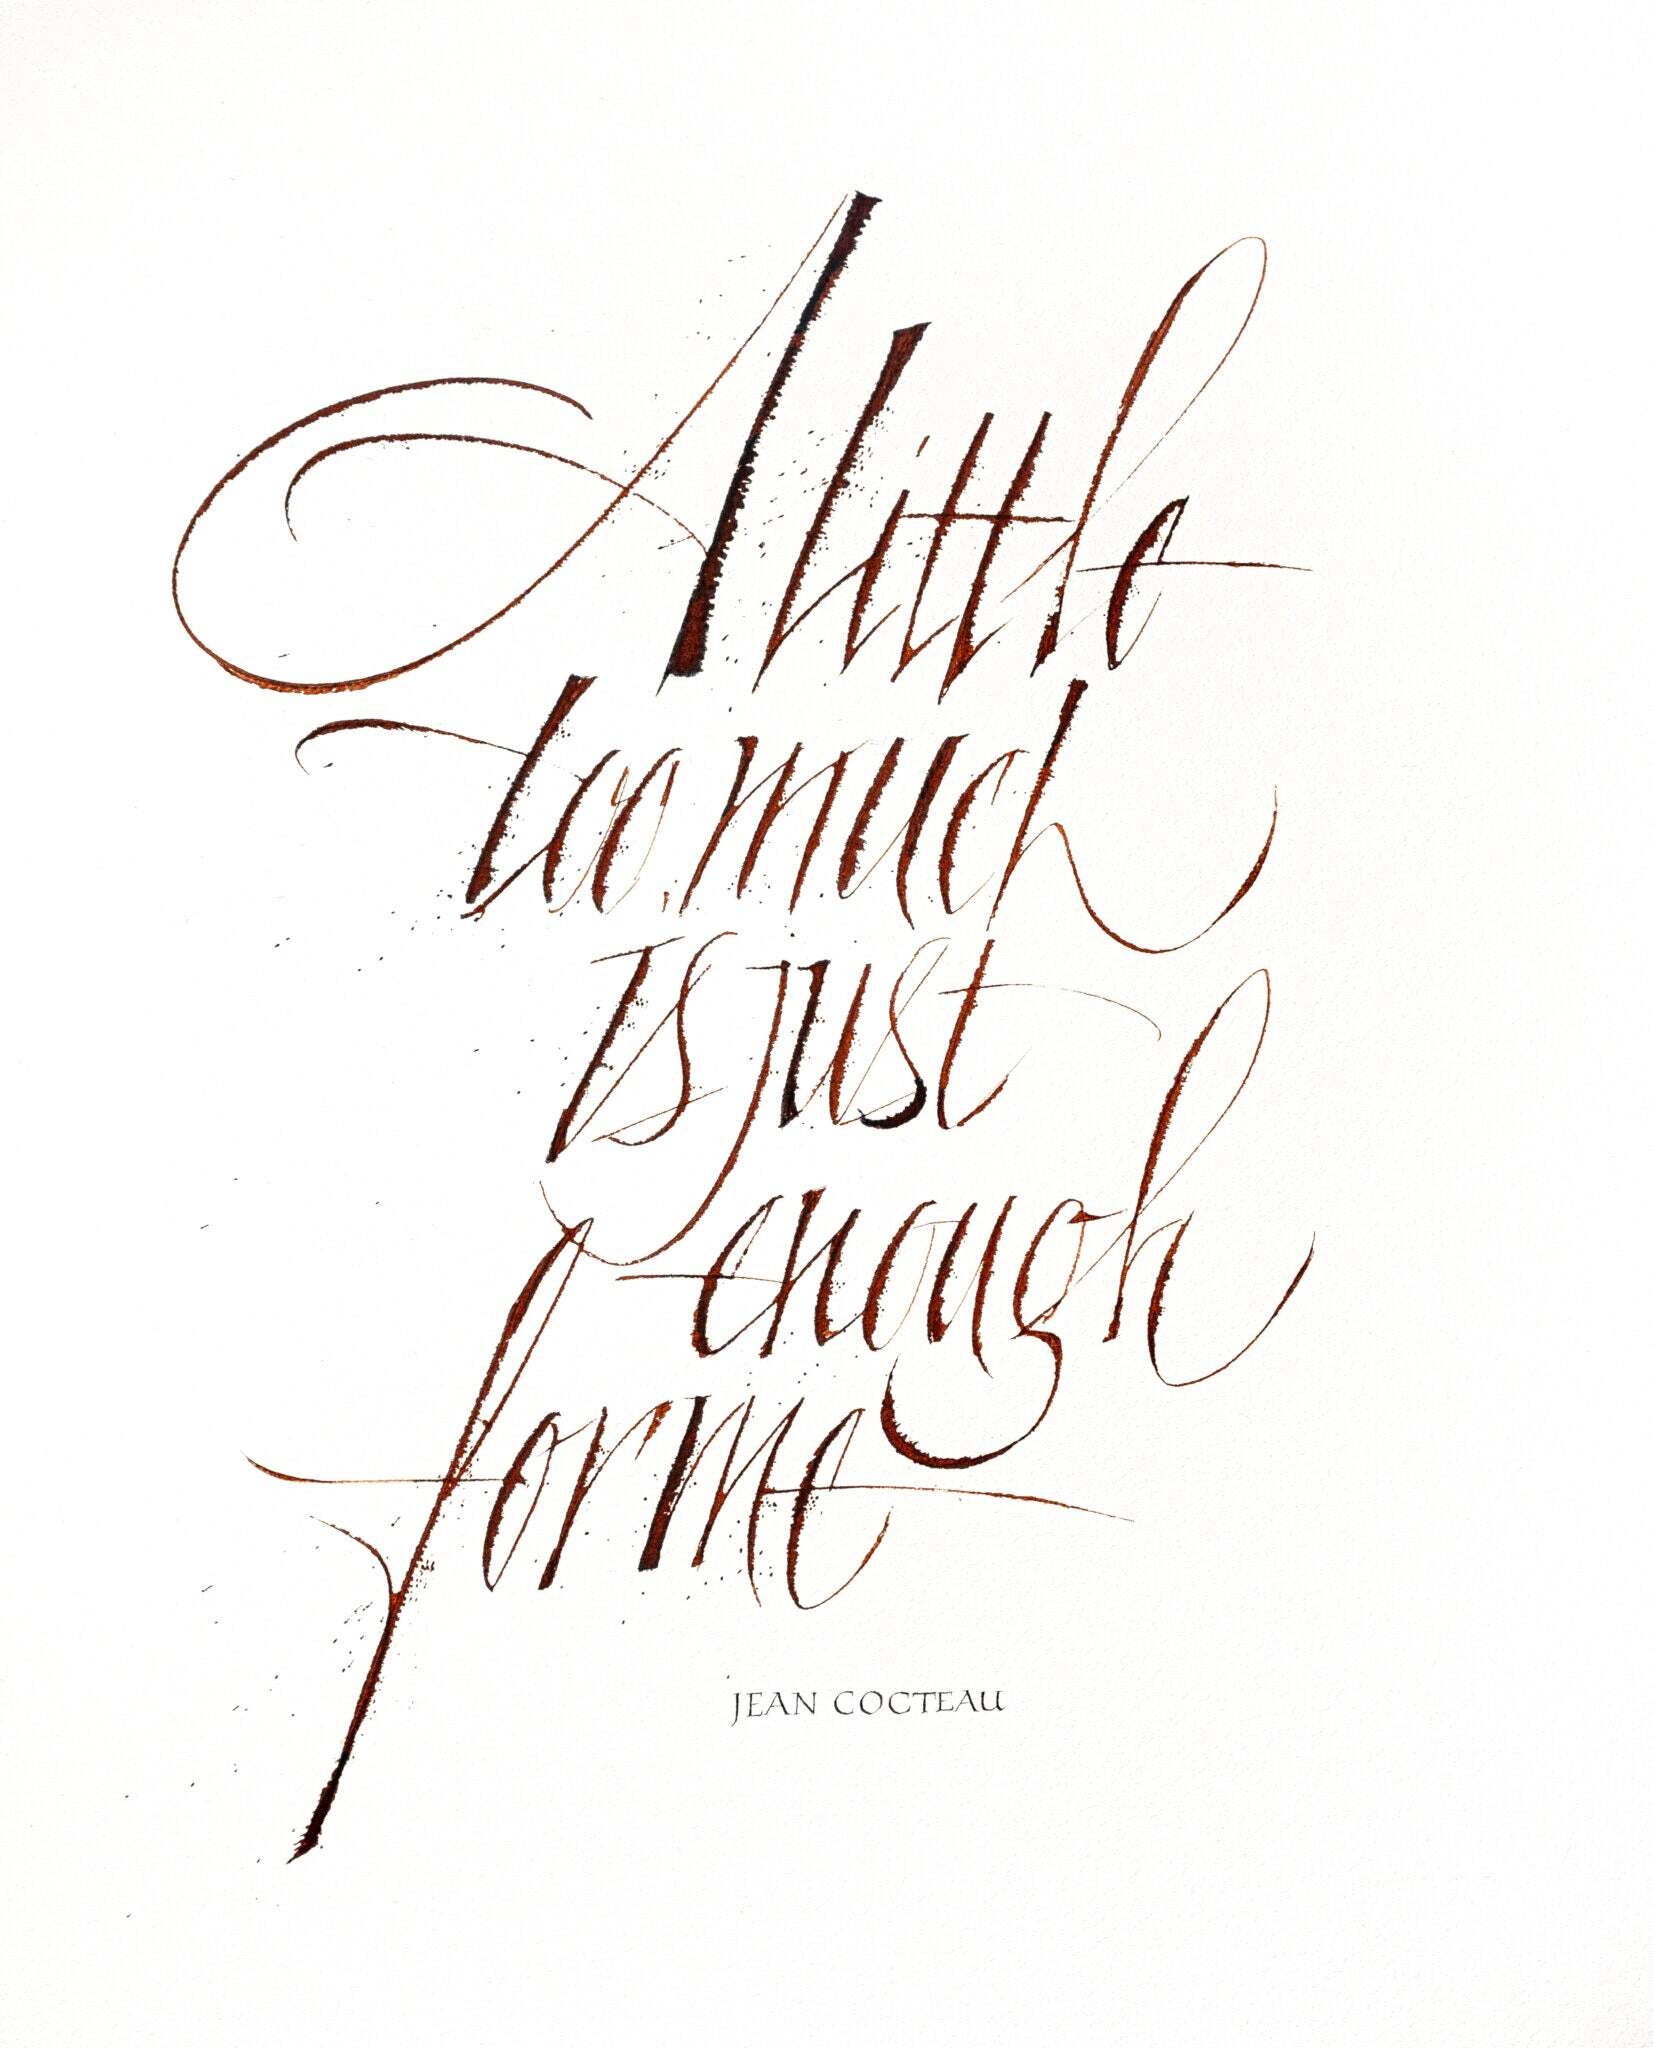 A little
too much
is just
enough
for me
JEAN COCTEAU